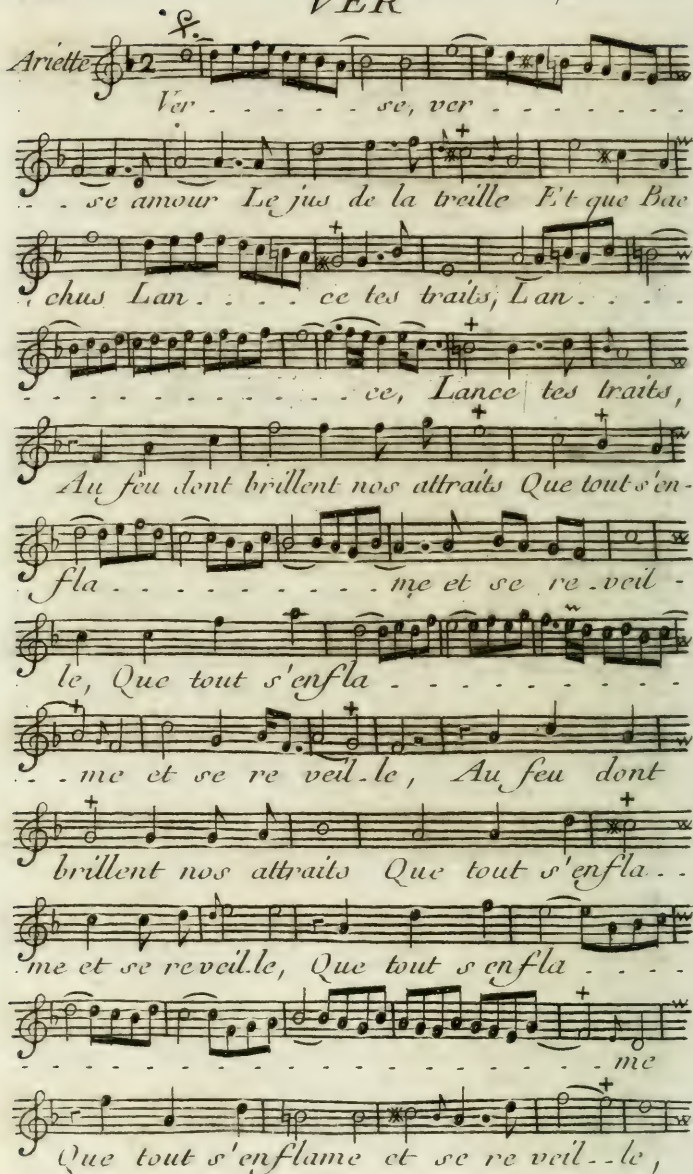 VER
Ariette 2
Ver - - - - - se, ver - - - - - -
- - se amour Le jus de la treille Et que Bac
chus Lan - - - - ce tes traits, Lan - - - -
- - - - - - - - - - - ce, Lance tes traits,
Au feu dont brillent nos attraits Que tout s'en-
fla - - - - - - - - - me et se re - veil -
le, Que tout s'enfla - - - - - - - - -
- - me et se re veil - le, Au feu dont
brillent nos attraits Que tout s'enfla - -
me et se reveil-le, Que tout s enfla - - - -
- - - - - - - - - - - - - - - me
Que tout s'enflame et se re veil - - le,